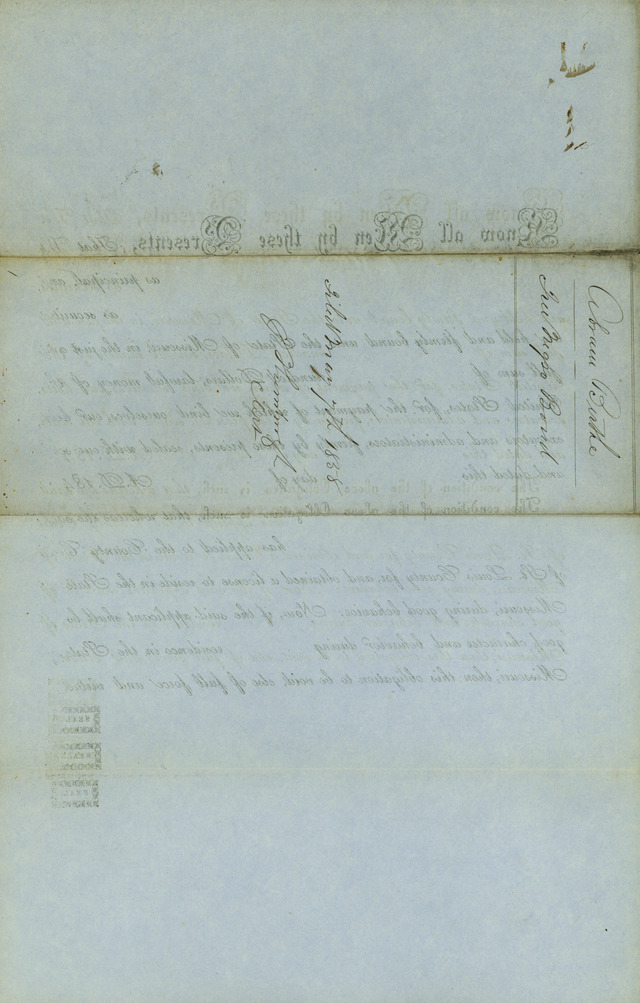 Abram Burke
Free Negro Bond
Filed
7th 1838
Know all Men by these Presents, That We
as principal, and
as securities
held and firmly bound unto the State of Missouri in the just and
sum of
hundred Dollars, lawful money of the
United States, for the payment of which we bind ourselves, our heirs,
executors and administrators, firmly by these presents, sealed with our
and dated this
day of
A.D. 184
The condition of the above Obligation is such, that whereas the said
has applied to the County Court
of St. Louis County for and obtained a license to reside in the State of
Missouri, during good behavior: Now, if the said applicant shall be of
good character and behavior during
residence in the State of
Missouri, then this obligation to be void, else of full force and virtue.
SEAL
SEAL
SEAL